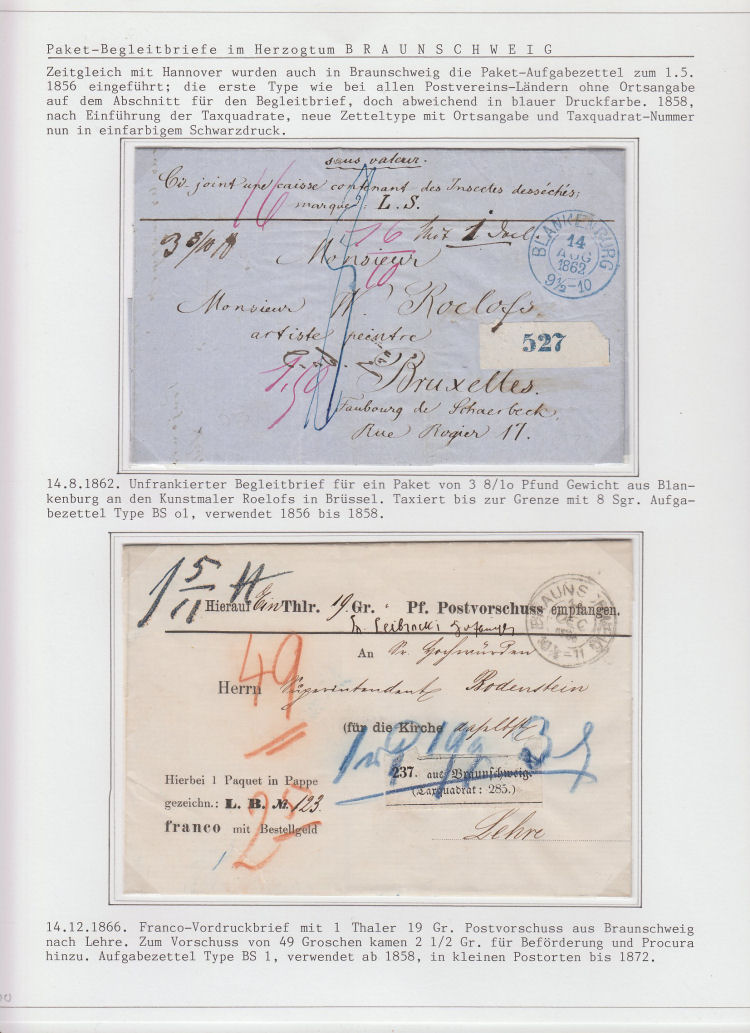 Paket-Begleitbriefe im Herzogtum B R A U N S C H W E I G
Zeitgleich mit Hannover wurden auch in Braunschweig die Paket-Aufgabezettel zum 1.5.
1856 eingeführt; die erste Type wie bei allen Postvereins-Ländern ohne Ortsangabe
auf dem Abschnitt für den Begleitbrief, doch abweichend in blauer Druckfarbe. 1858,
nach Einführung der Taxquadrate, neue Zetteltype mit Ortsangabe und Taxquadrat-Nummer
nun in einfarbigem Schwarzdruck.
sans valeur.
Ci-joint une caisse contenant des Insectes desséchés;
marque: L. S.
16
3 8/10 ℔
26
10
Mit 1
BLANKENBURG
14
AUG
1862
9½-10
Monsieur
Monsieur W. Roelofs
artiste peintre
527
Bruxelles.
Faubourg de Schaerbeck,
Rue Rogier 17.
14.8.1862. Unfrankierter Begleitbrief für ein Paket von 3 8/1o Pfund Gewicht aus Blan-
kenburg an den Kunstmaler Roelofs in Brüssel. Taxiert bis zur Grenze mit 8 Sgr. Aufga-
bezettel Type BS o1, verwendet 1856 bis 1858.
1 5/11 ℔
Hierauf Ein Thlr. 19 Gr. " Pf. Postvorschuss empfangen.
BRAUNSCHWEIG
14
DEC
An Sr. Hochwürden
49
Herrn Superintendent Bodenstein
(für die Kirche daselbst)
237. aus Braunschweig.
(Taxquadrat: 285.)
Hierbei 1 Paquet in Pappe
gezeichn.: L. B. №. 123.
franco mit Bestellgeld
Lehre
14.12.1866. Franco-Vordruckbrief mit 1 Thaler 19 Gr. Postvorschuss aus Braunschweig
nach Lehre. Zum Vorschuss von 49 Groschen kamen 2 1/2 Gr. für Beförderung und Procura
hinzu. Aufgabezettel Type BS 1, verwendet ab 1858, in kleinen Postorten bis 1872.